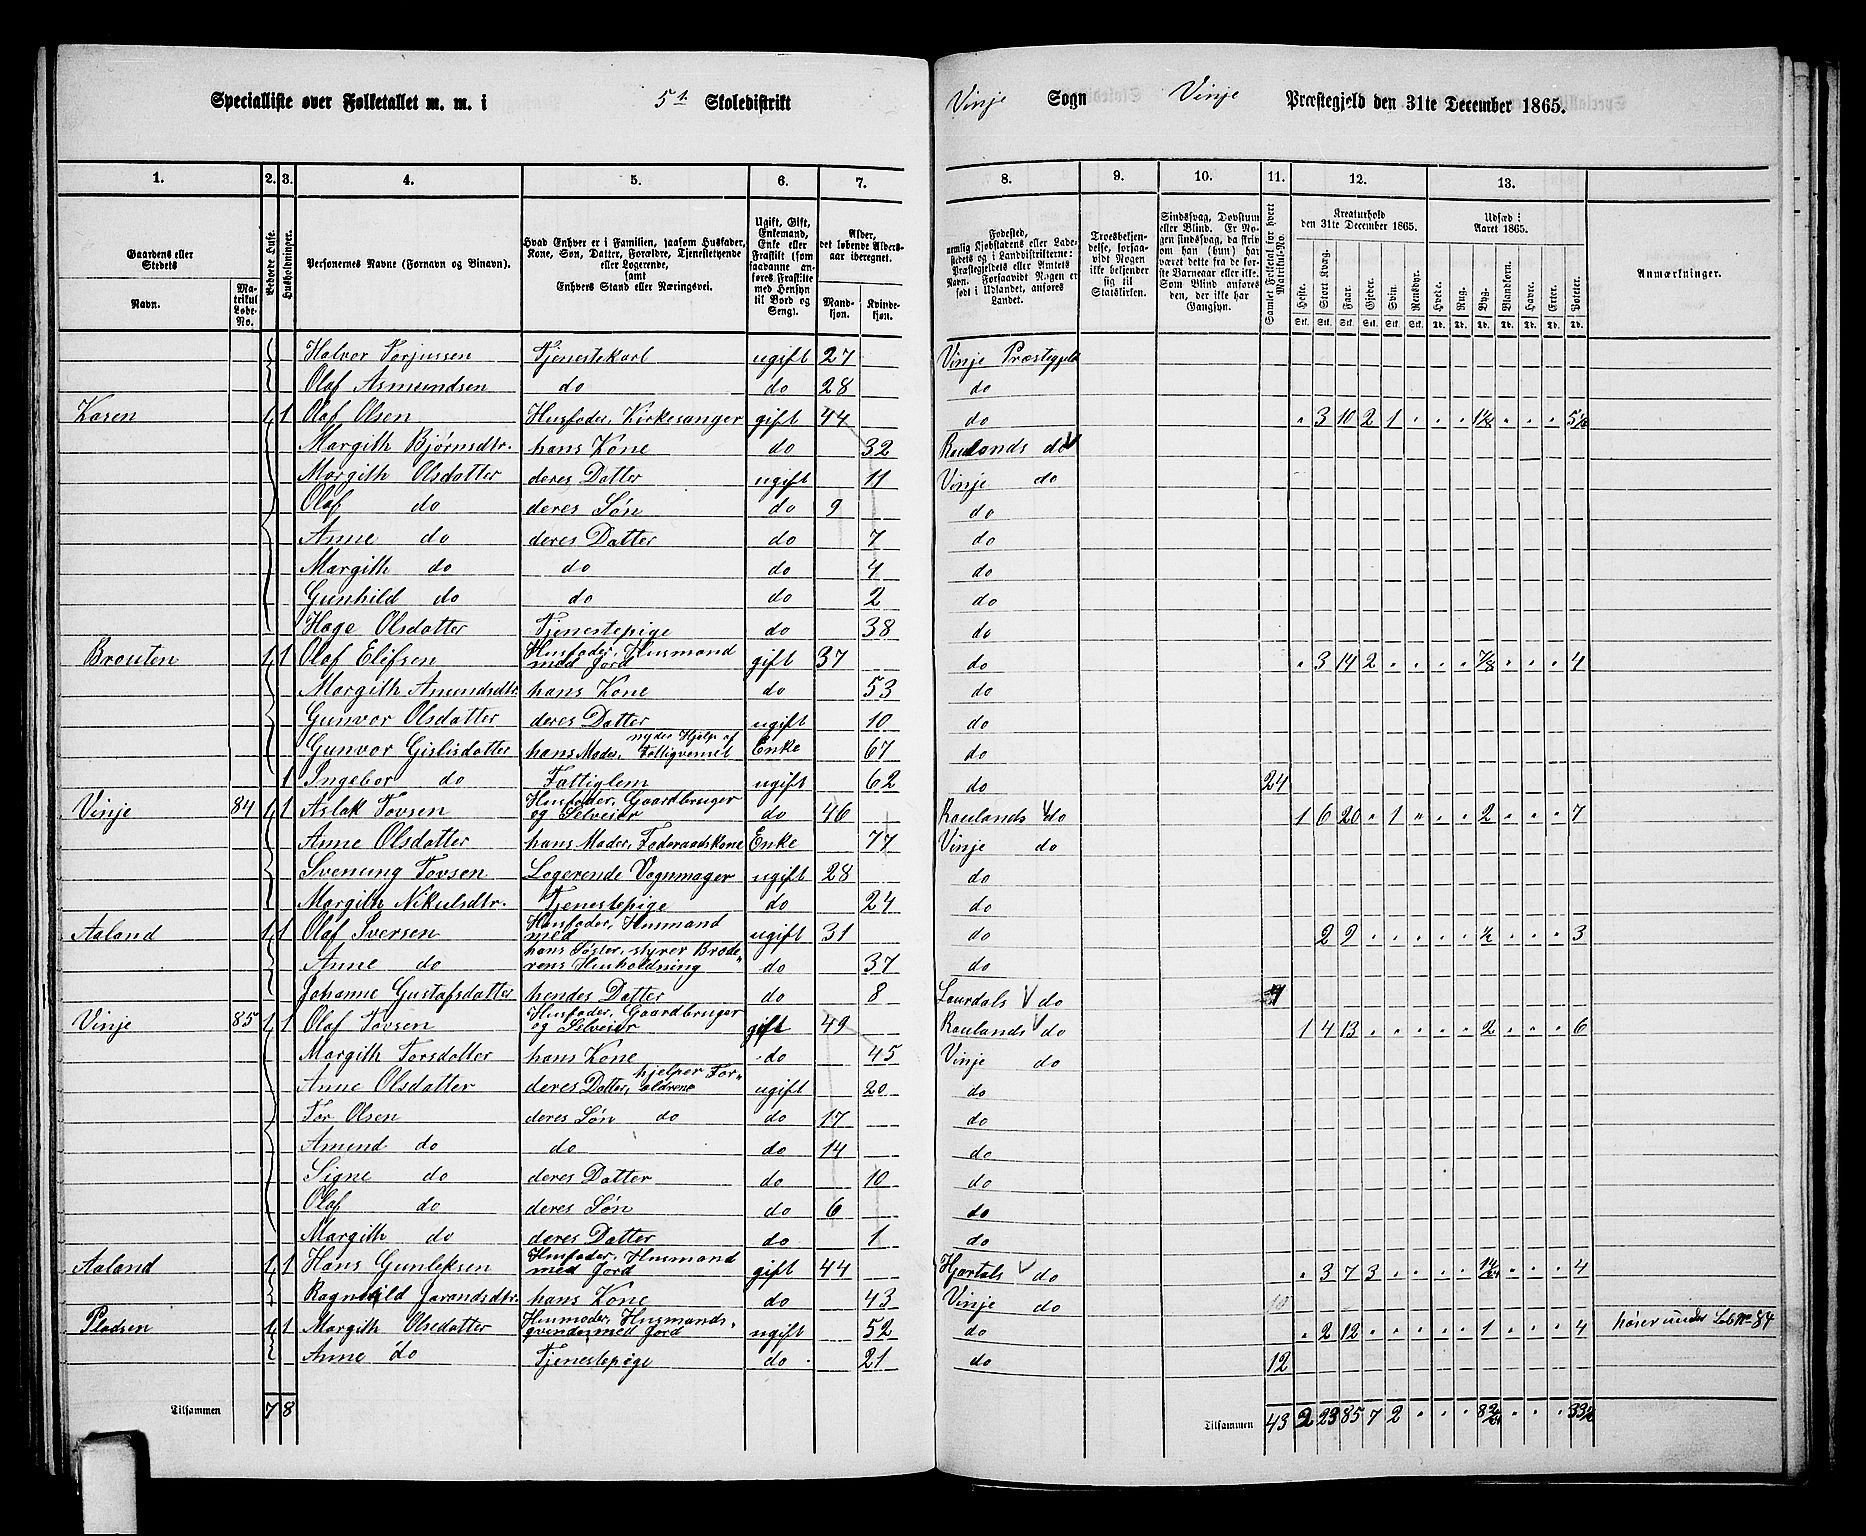 Specialliste over Folketallet m. m. i 5te Skoledistrikt Vinje Sogn Vinje Præstegjeld den 31te December 1865.
1. 2. 3. 4. 5. 6. 7. 8. 9. 10. 11. 12. 13.
Gaardens eller Stedets
Navn.
Matrikul Løbe-No.
Bebоede Huse.
Husholdninger.
Personernes Navne (Fornavn og Binavn).
Hvad Enhver er i Familien, saasom Husfader, Kone, Søn, Datter, Forældre, Tjenestetyende eller Logerende, samt Enhvers Stand eller Næringsvei.
Ugift, Gift, Enkemand, Enke eller Fraskilt (som saadanne anføres Fraskilte med Hensyn til Bord og Seng).
Alder, det løbende Alders-aar iberegnet.
Mandkjøn. Kvindekjøn.
Fødested, nemlig Kjøbstadens eller Ladestedets og i Landdistrikterne: Præstegjeldets eller Amtets Navn. Forsaavidt Nogen er født i Udlandet, anføres Landet.
Troesbekjendelse, forsaavidt Nogen ikke bekjender sig til Statskirken.
Sindssvag, Døvstum eller Blind. Er Nogen sindssvag, da skriv om han (hun) har været dette fra de første Barneaar eller ikke. Som Blind anføres den, der ikke har Gangsyn.
Samlet Folketal for hvert Matrikul-No.
Kreaturhold den 31te December 1865.
Heste. Stort Kvæg. Faar. Gjeder. Svin. Rensdyr.
Udsæd i Aaret 1865.
Hvede. Rug. Byg. Blandkorn. Havre. Erter. Poteter.
Anmærkninger.
Halvor Torjussen Tjenestekarl ugift 27 Vinje Præstegjeld
Olaf Asmundsen do do 28 do
Kasen 1 1 Olaf Olsen Husfader, Kirkesanger gift 44 do " 3 10 2 1
Margith Bjørnsdtr. hans Kone do 32 Raulands do
Margith Olsdatter deres Datter ugift 11 Vinje do
Olaf do deres Søn do 9 do
Anne do deres Datter do 7 do
Margith do do do 4 do
Gunhild do do do 2 do
Hæge Olsdatter Tjenestepige do 38 do
Brauten 1 1 Olaf Elefsen Husfader, Husmand med Jord gift 37 do " 3 14 2 " " " " 7/8 " " " 4
Margith Amundsdtr. hans Kone do 53 do
Gunvor Olsdatter deres Datter ugift 10 do
Gunvor Gislisdatter hans Moder, nyder Hjelp af Fattigvæsnet Enke 67 do
1 Ingebor do Fattiglem ugift 62 do 24
Vinje 84 1 1 Aslak Tovsen Husfader, Gaardbruger og Selveier do 46 Raulands do 1 6 20 " 1 " " " 2 " " " 7
Anne Olsdatter hans Moder, Føderaadskone Enke 77 Vinje do
Svenung Tovsen Logerende Vognmager ugift 28 do
Margith Nikulsdtr. Tjenestepige do 24 do
Aaland 1 1 Olaf Iversen Husfader, Husmand med ugift 31 do 2 9 3
Anne do hans Søster, styrer Broderens Husholdning do 37 do
Johanne Gustafsdatter hendes Datter do 8 Laurdals do 7
Vinje 85 1 1 Olaf Tovsen Husfader, Gaardbruger og Selveier gift 49 Raulands do 1 4 13 " " " " " 2 " " " 6
Margith Torsdatter hans Kone do 45 Vinje do
Anne Olsdatter deres Datter, hjelper Forældrene ugift 20 do
Tor Olsen deres Søn do do 17 do
Amund do do do 14 do
Signe do deres Datter do 10 do
Olaf do deres Søn do 6 do
Margith do deres Datter do 1 do
Aaland 1 1 Hans Gunleksen Husfader, Husmand med Jord gift 44 Hjertdals do " 3 7 3 4
Ragnhild Jorandsdtr. hans Kone do 43 Vinje do 10
Pladsen 1 1 Margith Olsdatter Husmoder, Husmandsqvinde med Jord ugift 52 do " 2 12 " " " " " 1 " " " 4 hører under Løb No 84
Anne do Tjenestepige do 21 do 12
Tilsammen 7 8 Tilsammen 43 2 23 85 7 2